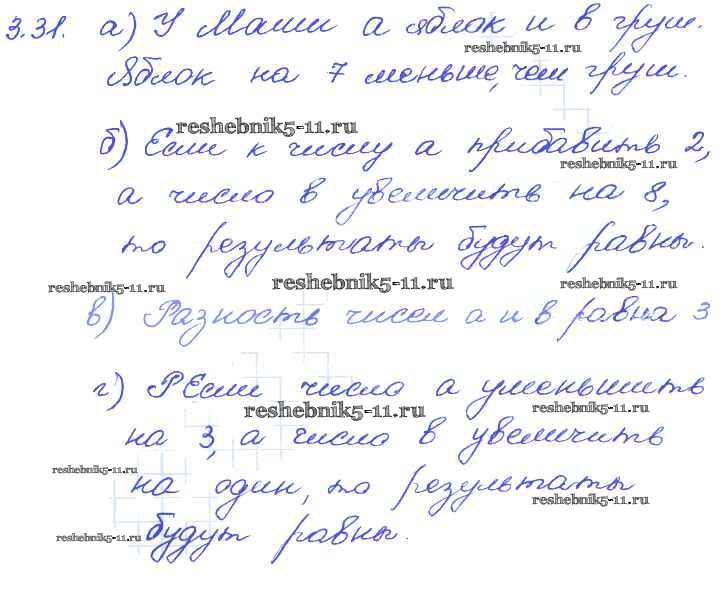 3.31. а) У Маши а яблок и в груш.
reshebnik5-11.ru
Яблок на 7 меньше, чем груш.
reshebnik5-11.ru
б) Если к числу а прибавить 2,
reshebnik5-11.ru
а число в увеличить на 8,
то результаты будут равны.
reshebnik5-11.ru reshebnik5-11.ru reshebnik5-11.ru
в) Разность чисел а и в равна 3
г) РЕсли число а уменьшить
reshebnik5-11.ru reshebnik5-11.ru
на 3, а число в увеличить
reshebnik5-11.ru
на один, то результаты
reshebnik5-11.ru
будут равны.
reshebnik5-11.ru